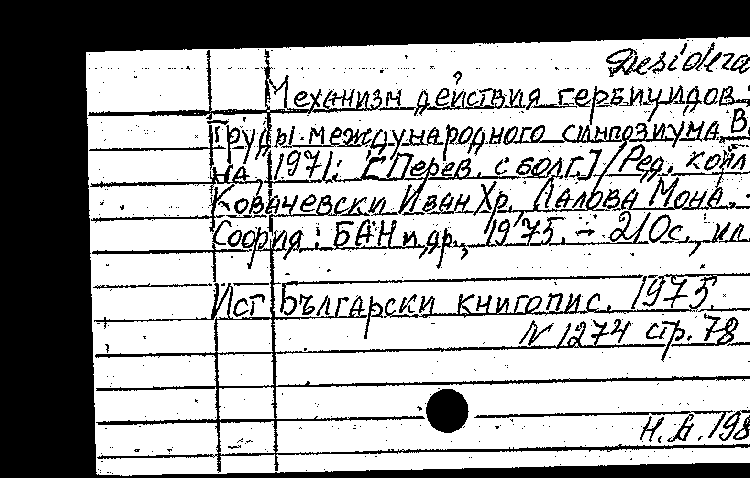 Desidera
Механизм действия гербицидов :
Труды международного симпозиума В
на, 1971: [Перев. с болг.] / Ред. койл
Ковачевски Иван Хр. Лалова Мона. -
София : БАН и др., 1975. - 210с., ил
Ист Български книгопис. 1975.
N 1274 стр. 78
Н.Б. 198